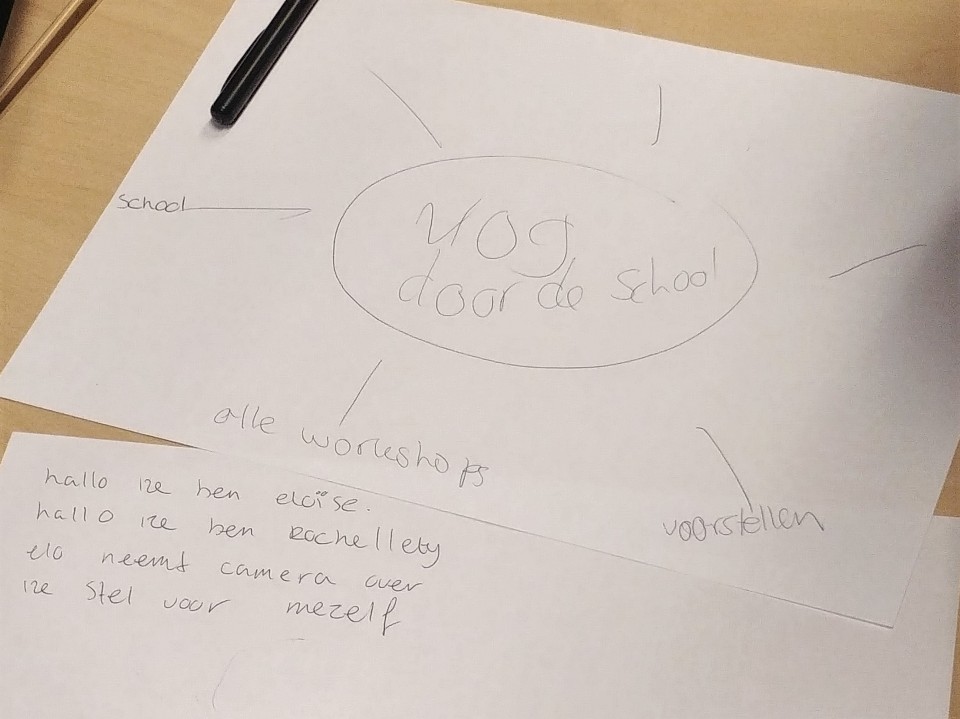 school
vlog
door de school
alle workshops
voorstellen
hallo ik ben eloïse.
hallo ik ben Rochellety
elo neemt camera over
ik stel voor mezelf